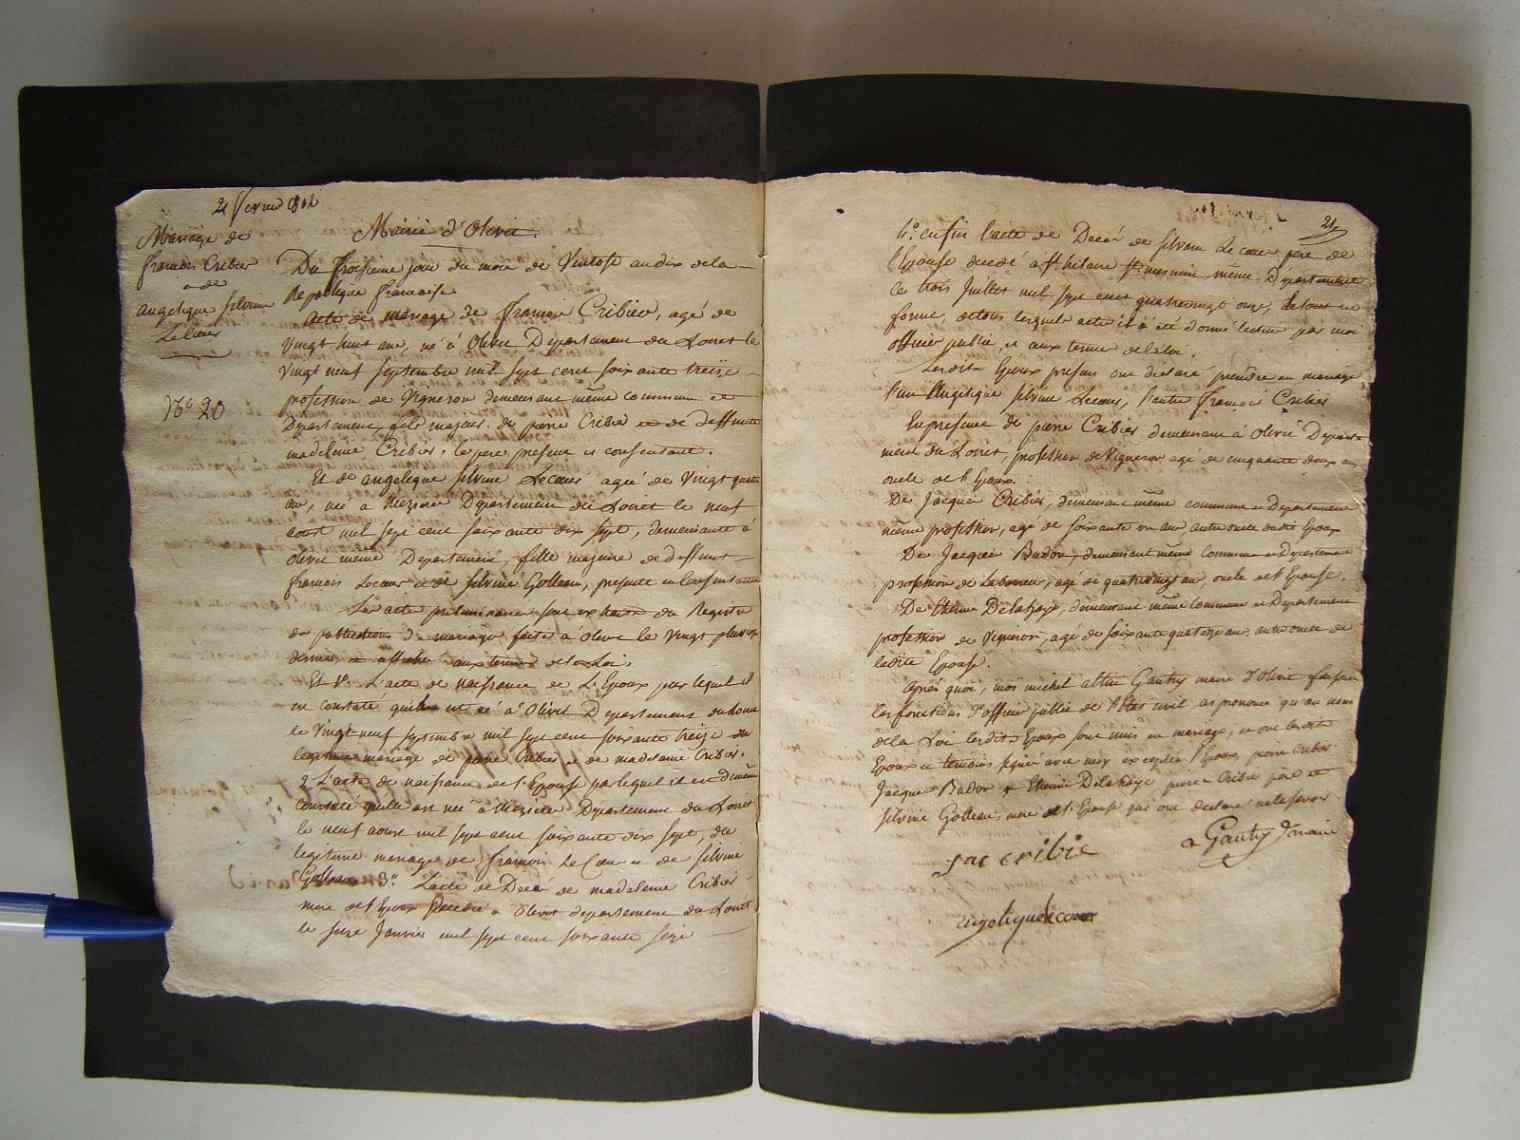 21 fevrier 1802
Mariage de
francois Cribier
& de
angelique silvine
Lecour
No 20
Mairie d'Olivet.
Du Troisieme jour du mois de Ventose an dix de la
Republique francaise
acte de mariage de francois Cribier, agé de
Vingt huit ans, né à Olivet Departement du Loiret le
Vingt neuf septembre mil sept cent soixante treize
profession de Vigneron demeurant même commune et
Departement, fils majeur de pierre Cribier et de deffunte
madeleine Cribier, le pere present et consentant.
Et de angelique silvine Lecour agée de Vingt quatre
ans, née a Mezieres Departement du Loiret le neuf
aoust mil sept cent soixante dix sept, demeurante à
olivet même Departement, fille majeure de deffunt
francois Lecour et de silvine Golleau, presente et Consentante
Les actes preliminaires sont extraits du Registre
des publications de mariage faite à Olivet le Vingt pluviose
dernier et affiché aux termes de la Loi,
Et 1° L'acte de naissance de L'Epoux par lequel il
est constaté quil est né à Olivet Departement du Loiret
le Vingt neuf septembre mil sept cent soixante treize du
legitime mariage de pierre Cribier et de madelaine Cribier.
2 L'acte de naissance de l'Epouse par lequel il est
Constaté quelle est née à Mezieres Departement du Loiret
le neuf aoust mil sept cent soixante dix sept, du
legitime mariage de francois Le Cour et de silvine
Golleau 3° L'acte de Decès de madeleine Cribier
mere de l'Epoux Decedée à Olivet departement du Loiret
le seize Janvier mil sept cent soixante seize
21
4° enfin l'acte de Decès de silvain Le cour pere de
l'Epouse decedé à St hilaire St mesmin même Departement
Ce trois Juillet mil sept cent quatrevingt onze, le tout en
forme, de tous lesquels actes il à été donné lecture par moi
officier public, et aux termes de la loi.
Lesdits Epoux presens ont declaré prendre en mariage
l'un Angelique silvine Lecour, l'autre françois Cribier
En presence de pierre Cribier demeurant à Olivet Departe
ment du Loiret, profession de Vigneron agé de cinquante deux ans
oncle de l'Epoux.
De Jacques Cribier, demeurant même commune et Departement
même profession, agé de soixante un ans autre oncle dudit Epoux
De Jacques Badou, demeurant même Commune et Departement
profession de Laboureur, agé de quatrevingt ans oncle de l'Epouse.
De Etienne Delahaye, demeurant même Commune et Departement
profession de Vigneron, agé de soixante quatorze ans, autre oncle de
ladite Epouse.
Après quoi, moi michel Gautry maire d'Olivet faisant
les fonctions d'officier public de l'Etat civil, ai prononcé qu'au nom
de la Loi lesdits Epoux sont unis en mariage, et ont lesdits
Epoux et temoins signé avec moy excepté l'Epoux, pierre Cribier
Jacques Badou & Etienne Delahaye, pierre Cribier pere et
silvine Golleau, mere de l'Epouse qui ont declaré ne le savoir
jac cribié
Gautry Maire
angelique lecour